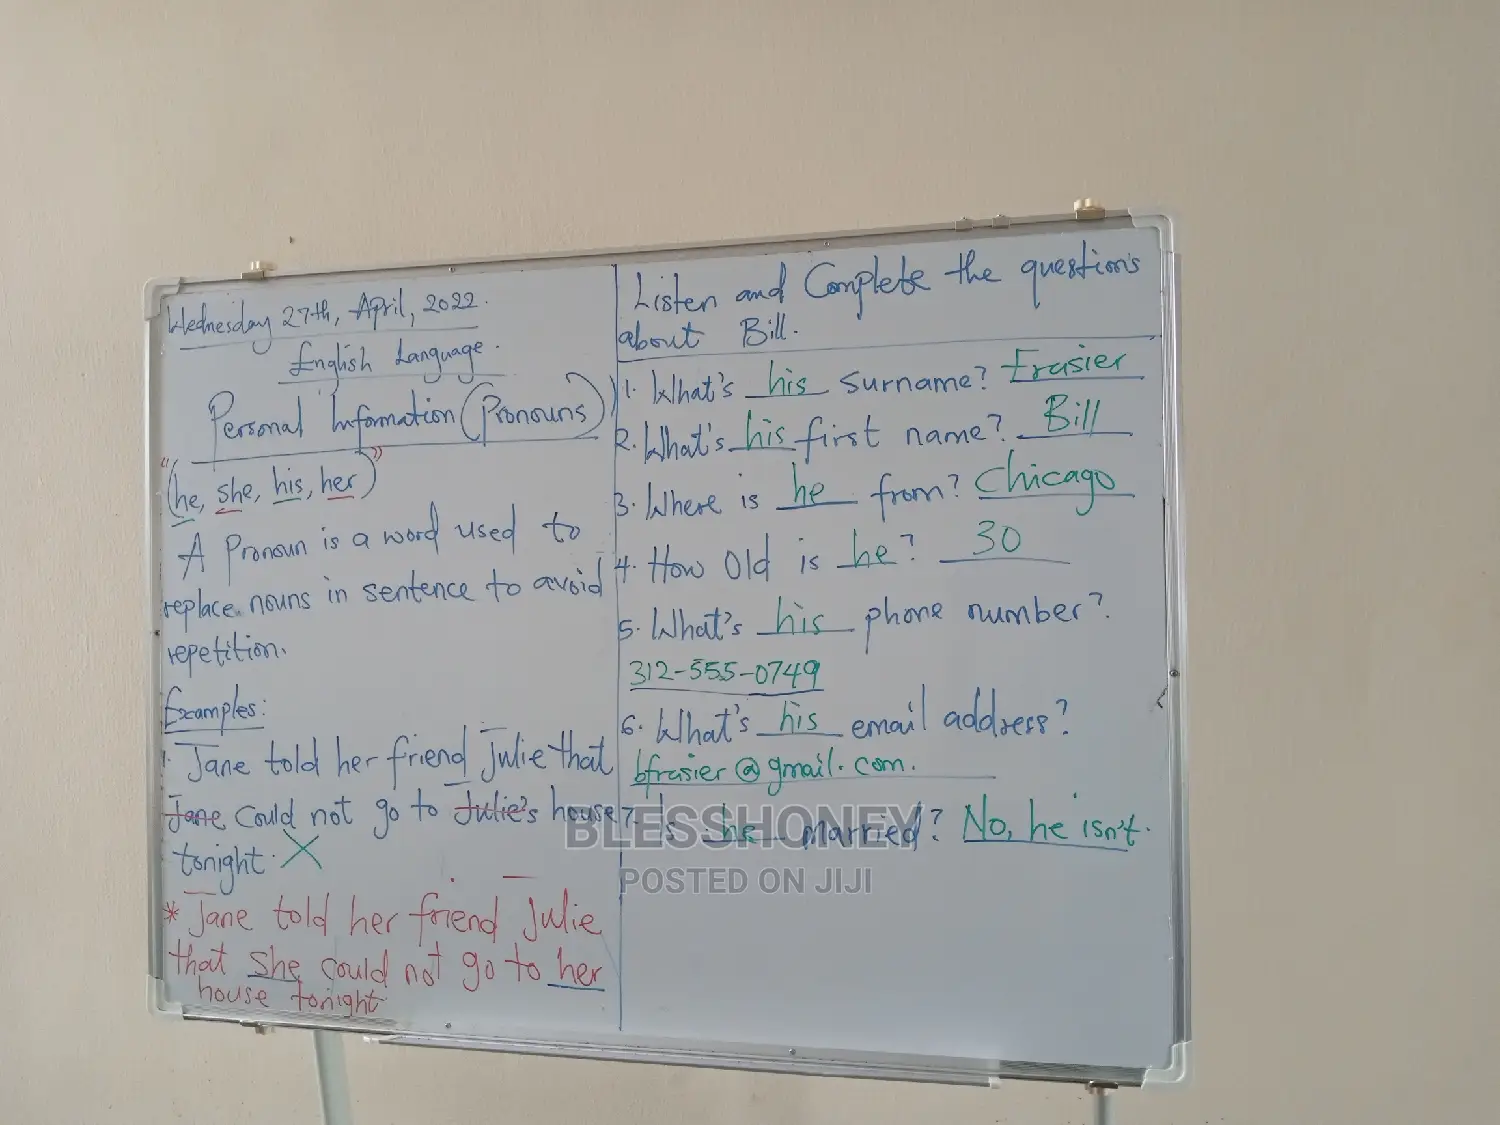 Wednesday 27th, April, 2022.
English Language.
Personal Information (Pronouns)
"(he, she, his, her)"
A Pronoun is a word used to
replace nouns in sentence to avoid
repetition.
Examples:
1. Jane told her friend Julie that
Jane could not go to Julie's house
tonight. X
* Jane told her friend Julie
that she could not go to her
house tonight.
Listen and Complete the questions
about Bill.
1. What's his surname? Frasier
2. What's his first name? Bill
3. Where is he from? Chicago
4. How Old is he? 30
5. What's his phone number?
312-555-0749
6. What's his email address?
bfrasier@gmail.com.
7. Is he married? No, he isn't.
BLESSHONEY
POSTED ON JIJI